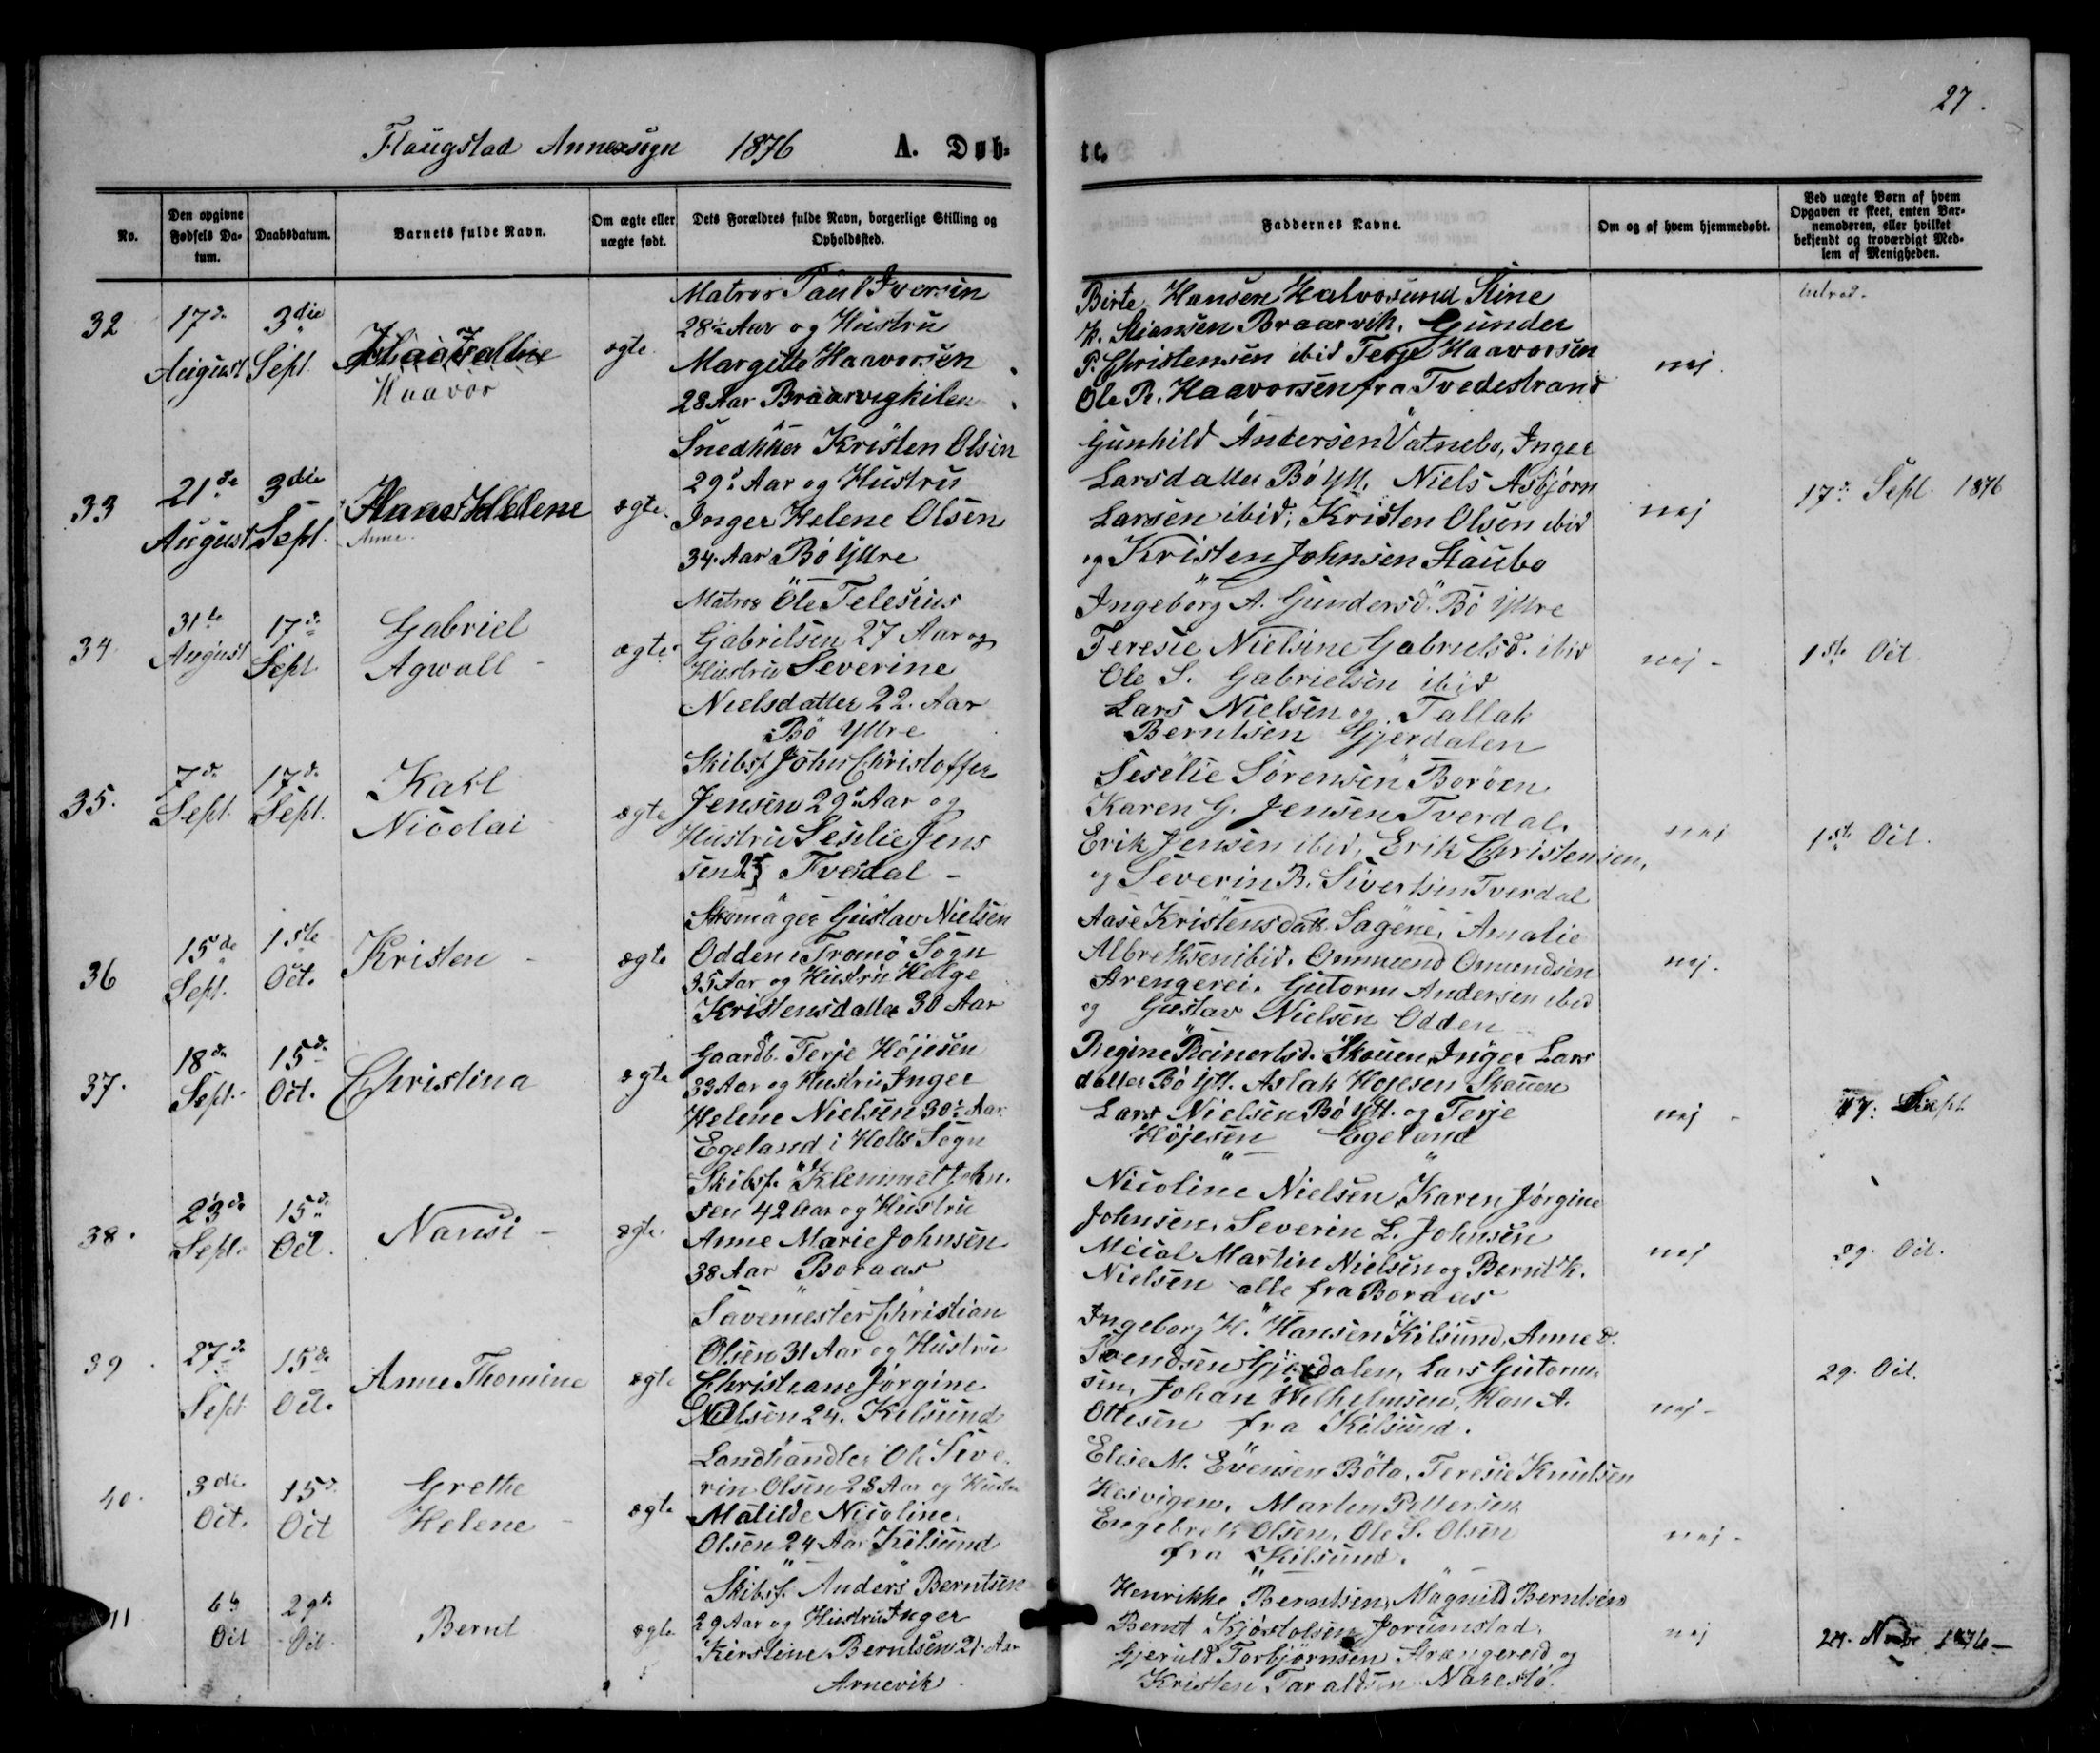 27.
Flaugstad Annexsogn 1876 A. Døb-
te.
No.
Den opgivne Fødsels Datum.
Daabsdatum.
Barnets fulde Navn.
Om ægte eller uægte født.
Dets Forældres fulde Navn, borgerlige Stilling og Opholdssted.
Faddernes Navne.
Om og af hvem hjemmedøbt.
Ved uægte Børn af hvem Opgaven er skeet, enten Barnemoderen, eller hvilket bekjendt og troværdigt Medlem af Menigheden.
32
17de August
3die Sept.
Haavor
ægte
Matros Paul Iversen
28 Aar og Hustru
Margitte Haavorsen
28 Aar Braarvigkilen
Birte Hansen Halvorsund Stine
K. Stiansen Braarvik. Gunder
P. Christensen ibid Terje Haavorsen
Ole R. Haavorsen fra Tvedestrand
nej.
33
21de August
3die Sept.
Helene
Anne
ægte
Snedkker Kristen Olsen
29 Aar og Hustru
Inger Helene Olsen
34 Aar Bö Yttre
Gunhild Andersen Vatnebo, Inger
Larsdatter Bö Ytt. Niels Asbjørn
Larsen ibid, Kristen Olsen ibid
og Kristen Johnsen Staubo
nej
17de Sept. 1876
34.
31te August
17de Sept
Gabriel
Agwall -
ægte
Matros Ole Telesius
Gabrilsen 27 Aar og
Hustru Severine
Nielsdatter 22. Aar
Bö Yttre
Ingeborg A. Gundersd. Bö Yttre
Teresie Nielsine Gabrielsd. ibid
Ole S. Gabrielsen ibid
Lars Nielsen og Tallak
Berntsen Gjerdalen
nej -
1ste Oct
35.
7de Sept.
17de Sept.
Karl
Nicolai
ægte
Skibsf. John Christoffer
Jensen 29 Aar og
Hustru Seselie Jens
sen Tverdal -
Seselie Sørensen Borøen
Karen G. Jensen Tverdal.
Erik Jensen ibid, Erik Christensen,
og Severin B. Sivertsen Tverdal
nej
1ste Oct.
36
15de Sept.
1ste Oct.
Kristen -
ægte
Skomager Gustav Nielsen
Odden i Tromö Sogn
35 Aar og Hustru Helge
Kristensdatter 30 Aar
Aase Kristensdatt. Sagene, Amalie
Albrethsen ibid. Ommund Omundsen
Arengerei. Gutorm Andersen ibid
og Gustav Nielsen Odden
nej.
37.
18de Sept.
15de Oct.
Christina
ægte
Gaardb. Terje Höjesen
33 Aar og Hustru Inger
Helene Nielsen 30 Aar
Egeland i Holts Sogn
Regine Reinertsd. Skouen, Inger Lars
datter Bö Ytt. Aslak Hojesen Skouen
Lars Nielsen Bö Ytt. og Terje
Höjesen Egeland
nej -
17. Sept
38.
23de Sept.
15de Oct.
Nansi -
ægte
Skibsf. Klemmet John.
sen 42 Aar og Hustru
Anne Marie Johnsen
38 Aar Boraas
Nicoline Nielsen, Karen Jörgine
Johnsen, Severin L. Johnsen
Micial Martin Nielsen og Bernt K.
Nielsen alle fra Boraas
nej
29. Oct.
39.
27de Sept
15de Oct.
Anne Thomine
ægte
Savemester Christian
Olsen 31 Aar og Hustru
Christiane Jörgine
Nilsen 24. Kilsund
Ingeborg H. Hansen Kilsund, Anne
Svendsen Gjerdalen, Lars Gutorm
sen, Johan Wilhelmsen, Han A.
Ottesen fra Kilsund.
nej -
29. Oct.
40.
3die Oct.
15de Oct
Grethe
Helene -
ægte
Landhandler Ole Sive
rin Olsen 28 Aar og Hustru
Matilde Nicoline
Olsen 24 Aar Kilsund
Elise M. Evensen Böta, Teresie Knutsen
Hesvigen, Marten Pettersen
Engebreth Olsen, Ole S. Olsen
fra Kilsund.
nej -
Oct
29de Oct.
Bernt
ægte
Skibsf. Anders Berntsen
29 Aar og Hustru Inger
Kirstine Berntsen 21. Aar
Arnevik.
Henrikke Berntsen, Magnild Berntsen
Bernt Kjöstolsen Jorumstad
Gjeruld Torbjörnsen Arængereid og
Kristen Taraldsen Narestö.
nej
1876 -